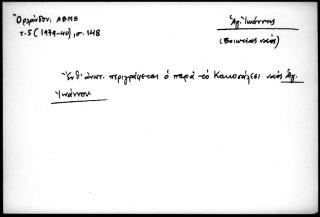 Ὀρλάνδου, ΑΒΜΕ
τ. 5 (1939-40), σ. 148
Ἁγ. Ἰωάννης
(Βοιωτίας ναός)
Ἔνθ' ἀνωτ. περιγράφεται ὁ παρὰ τὸ Κακοσάλεσι ναὸς Ἁγ.
Ἰωάννου